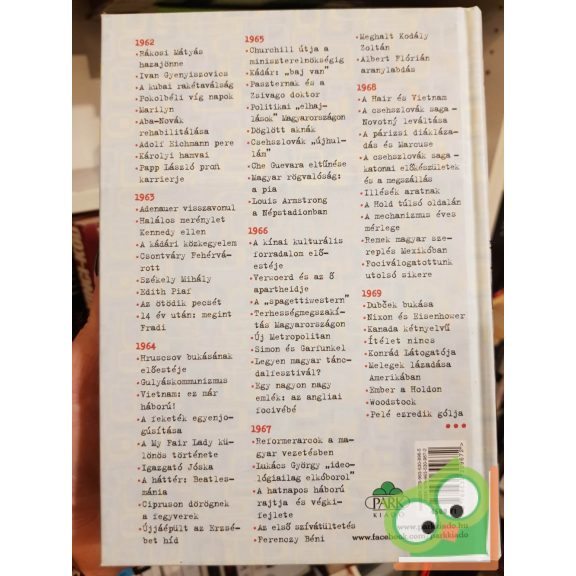 1962
• Rákosi Mátyás
hazajönne
• Ivan Gyenyiszovics
• A kubai rakétaválság
• Pokolbéli víg napok
• Marilyn
• Aba-Novák
rehabilitálása
• Adolf Eichmann pere
• Károlyi hamvai
• Papp László profi
karrierje
1963
• Adenauer visszavonul
• Halálos merénylet
Kennedy ellen
• A kádári közkegyelem
• Csontváry Fehérvá-
rott
• Székely Mihály
• Edith Piaf
• Az ötödik pecsét
• 14 év után: megint
Fradi
1964
• Hruscsov bukásának
előestéje
• Gulyáskommunizmus
• Vietnam: ez már
háború!
• A feketék egyenjo-
gúsítása
• A My Fair Lady kü-
lönös története
• Igazgató Jóska
• A háttér: Beatles-
mánia
• Cipruson dörögnek
a fegyverek
• Újjáépült az Erzsé-
bet híd
1965
• Churchill útja a
miniszterelnökségig
• Kádár: „baj van"
• Paszternak és a
Zsivago doktor
• Politikai „elhaj-
lások" Magyarországon
• Döglött aknák
• Csehszlovák „újhul-
lám"
• Che Guevara eltűnése
• Magyar rögvalóság:
a pia
• Louis Armstrong
a Népstadionban
1966
• A kínai kulturális
forradalom elő-
estéje
• Verwoerd és az ő
apartheidje
• A „spagettiwestern"
• Terhességmegszakí-
tás Magyarországon
• Új Metropolitan
• Simon és Garfunkel
• Legyen magyar tánc-
dalfesztivál?
• Egy nagyon nagy
emlék: az angliai
focivébé
1967
• Reformerarcok a ma-
gyar vezetésben
• Lukács György „ideo-
lógiailag elkóborol"
• A hatnapos háború
rajtja és végki-
fejlete
• Az első szívátültetés
• Ferenczy Béni
• Meghalt Kodály
Zoltán
• Albert Flórián
aranylabdás
1968
• A Hair és Vietnam
• A csehszlovák saga -
Novotný leváltása
• A párizsi diákláza-
dás és Marcuse
• A csehszlovák saga -
katonai előkészületek
és a megszállás
• Illésék aratnak
• A Hold túlsó oldalán
• A mechanizmus éves
mérlege
• Remek magyar sze-
replés Mexikóban
• Fociválogatottunk
utolsó sikere
1969
• Dubček bukása
• Nixon és Eisenhower
• Kanada kétnyelvű
• Ítélet nincs
• Konrád Látogatója
• Melegek lázadása
Amerikában
• Ember a Holdon
• Woodstock
• Pelé ezredik gólja
PARK
KIADÓ
www.parkkiado.hu
www.facebook.com/parkkiado